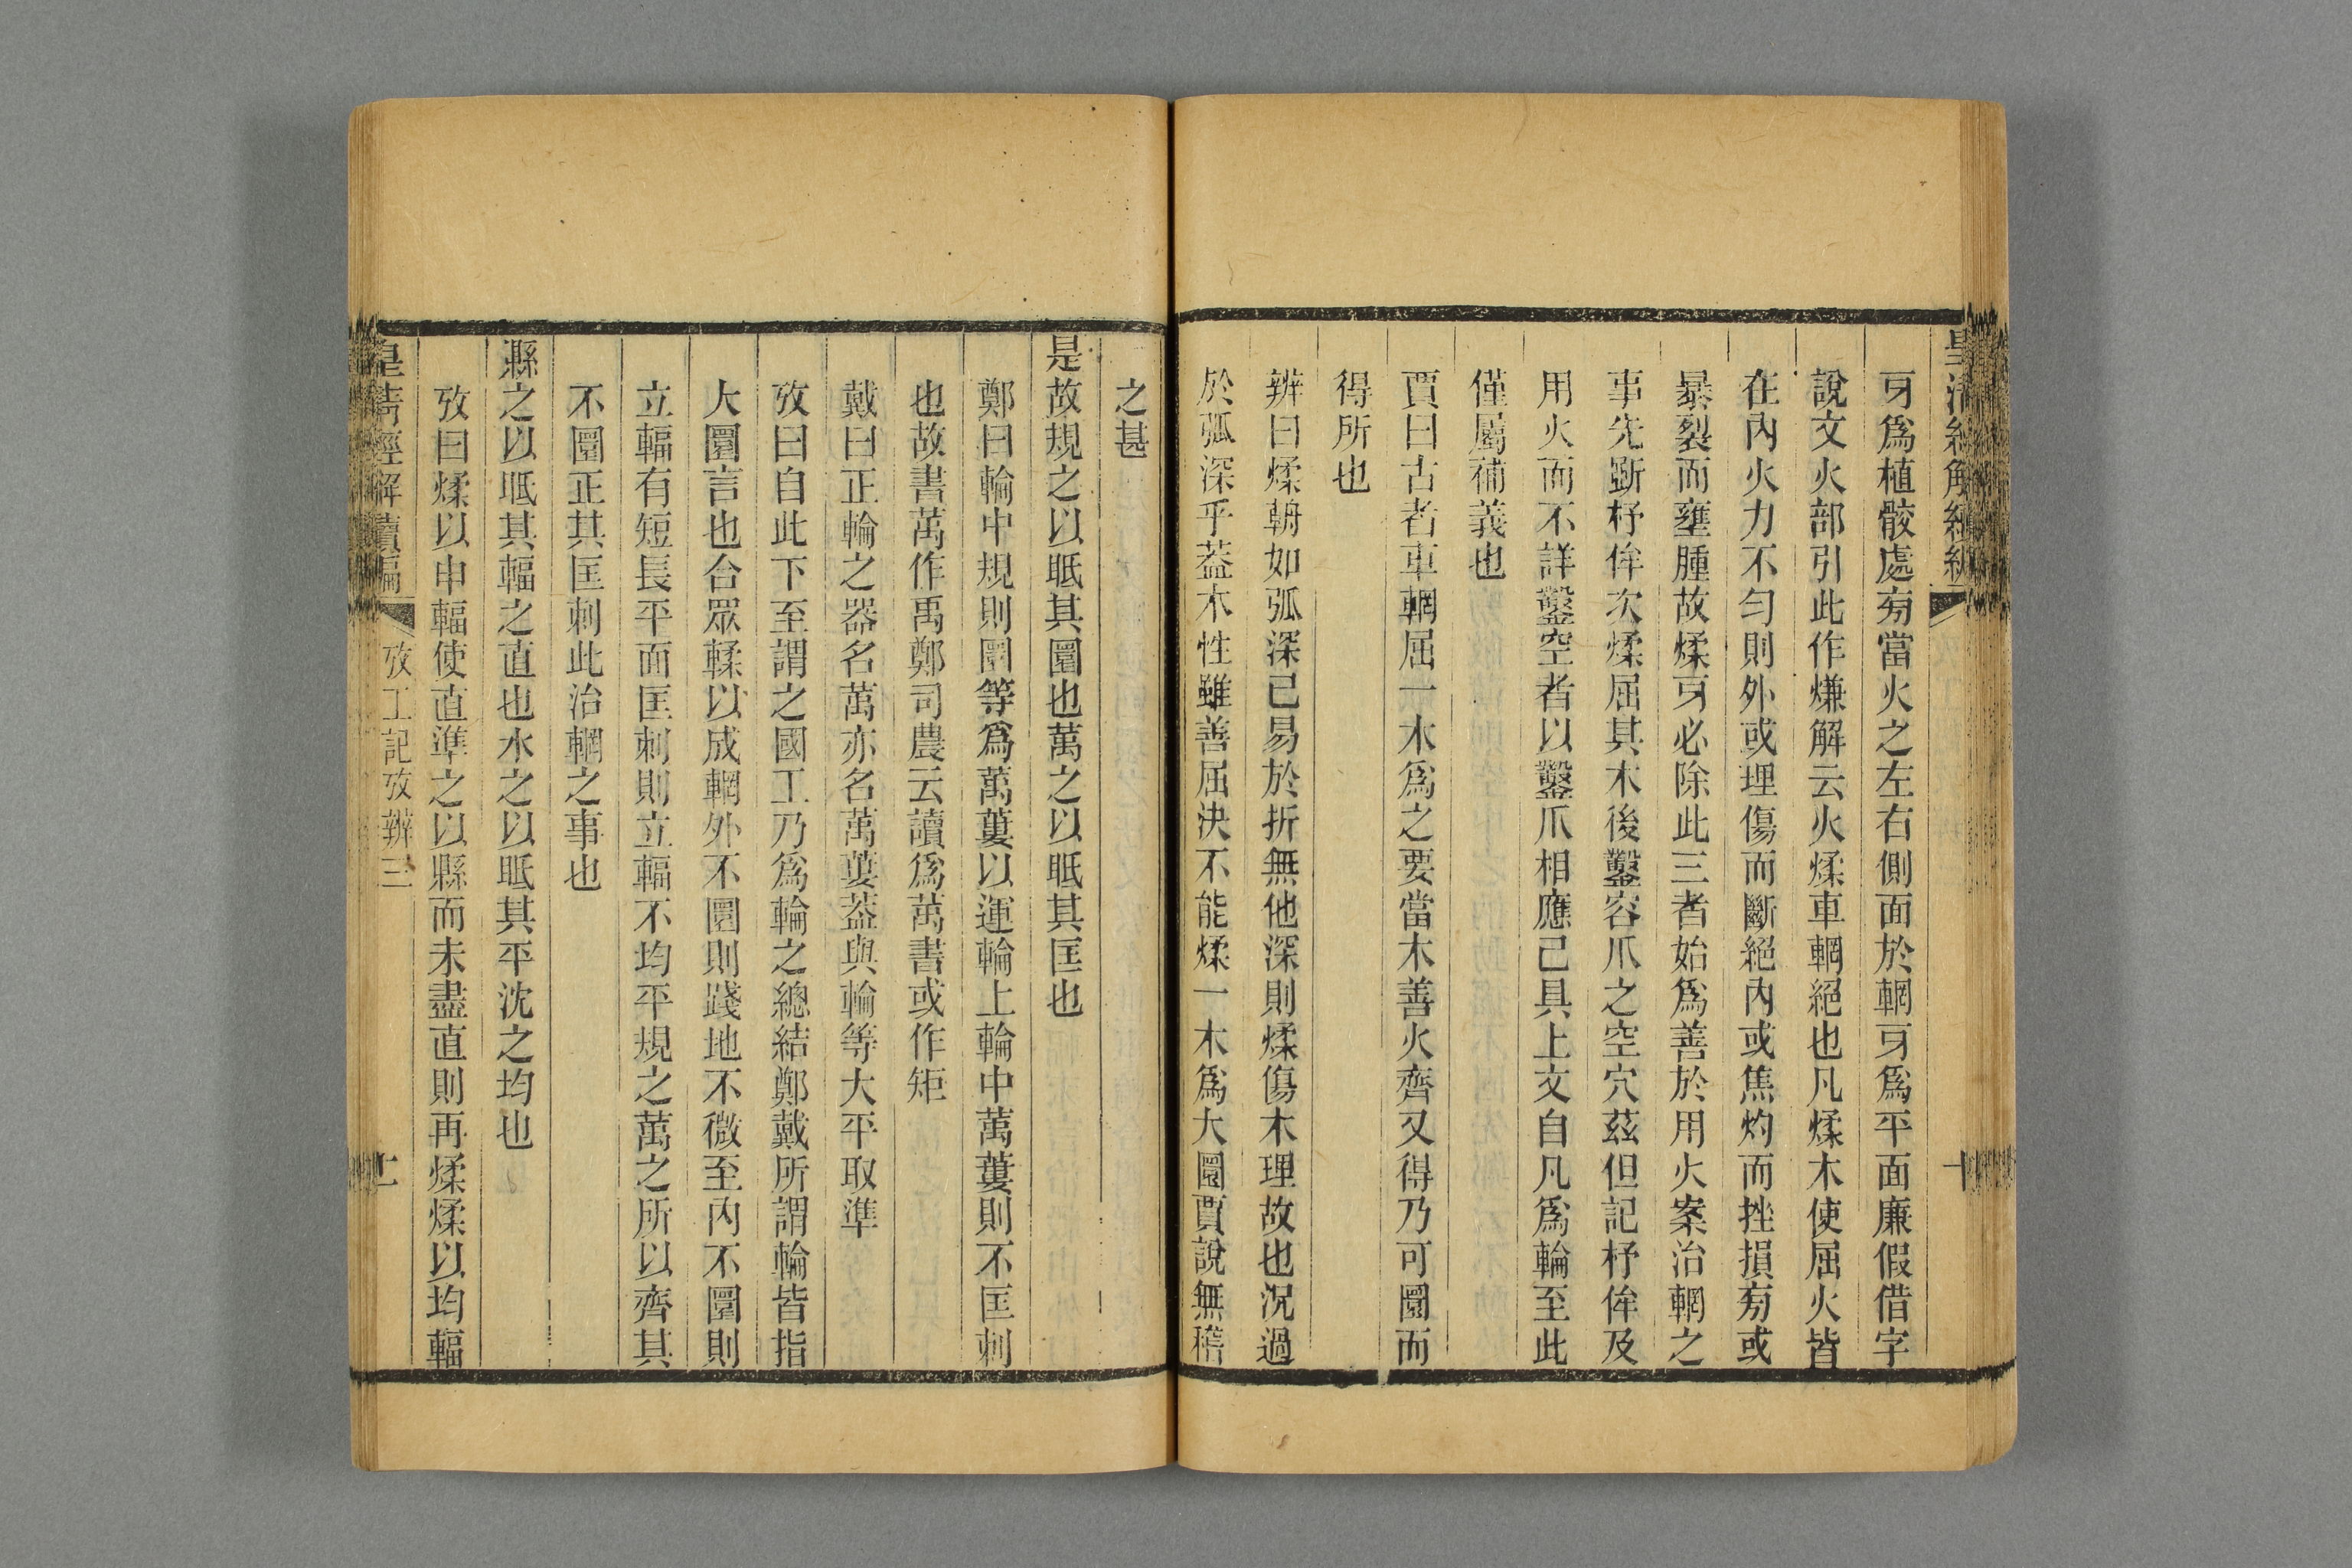 牙爲植骹處㫄當火之左右側面於輞牙爲平面廉假借字
說文火部引此作熑解云火煣車輞絕也凡煣木使屈火皆
在內火力不匀則外或理傷而斷絕內或焦灼而挫損㫄或
暴裂而壅腫故煣牙必除此三者始爲善於用火案治輞之
事先斲杼侔次煣屈其木後鑿容爪之空穴茲但記杼侔及
用火而不詳鑿空者以鑿爪相應已具上文自凡爲輪至此
僅屬補義也
賈曰古者車輞屈一木爲之要當木善火齊又得乃可圜而
得所也
辨曰煣輈如弧深已易於折無他深則煣傷木理故也況過
於弧深乎葢木性雖善屈決不能煣一木爲大圜賈說無稽
之甚
是故規之以眡其圜也萬之以眡其匡也
鄭曰輪中規則圜等爲萬蔞以運輪上輪中萬蔞則不匡刺
也故書萬作禹鄭司農云讀爲萬書或作矩
戴曰正輪之器名萬亦名萬蔞葢與輪等大平取準
攷曰自此下至謂之國工乃爲輪之總結鄭戴所謂輪皆指
大圜言也合眾輮以成輞外不圜則踐地不微至內不圜則
立輻有短長平面匡刺則立輻不均平規之萬之所以齊其
不圜正其匡刺此治輞之事也
縣之以眡其輻之直也水之以眡其平沈之均也
攷曰煣以申輻使直準之以縣而未盡直則再煣煣以均輻
皇淸經解續編
攷工記攷辨三